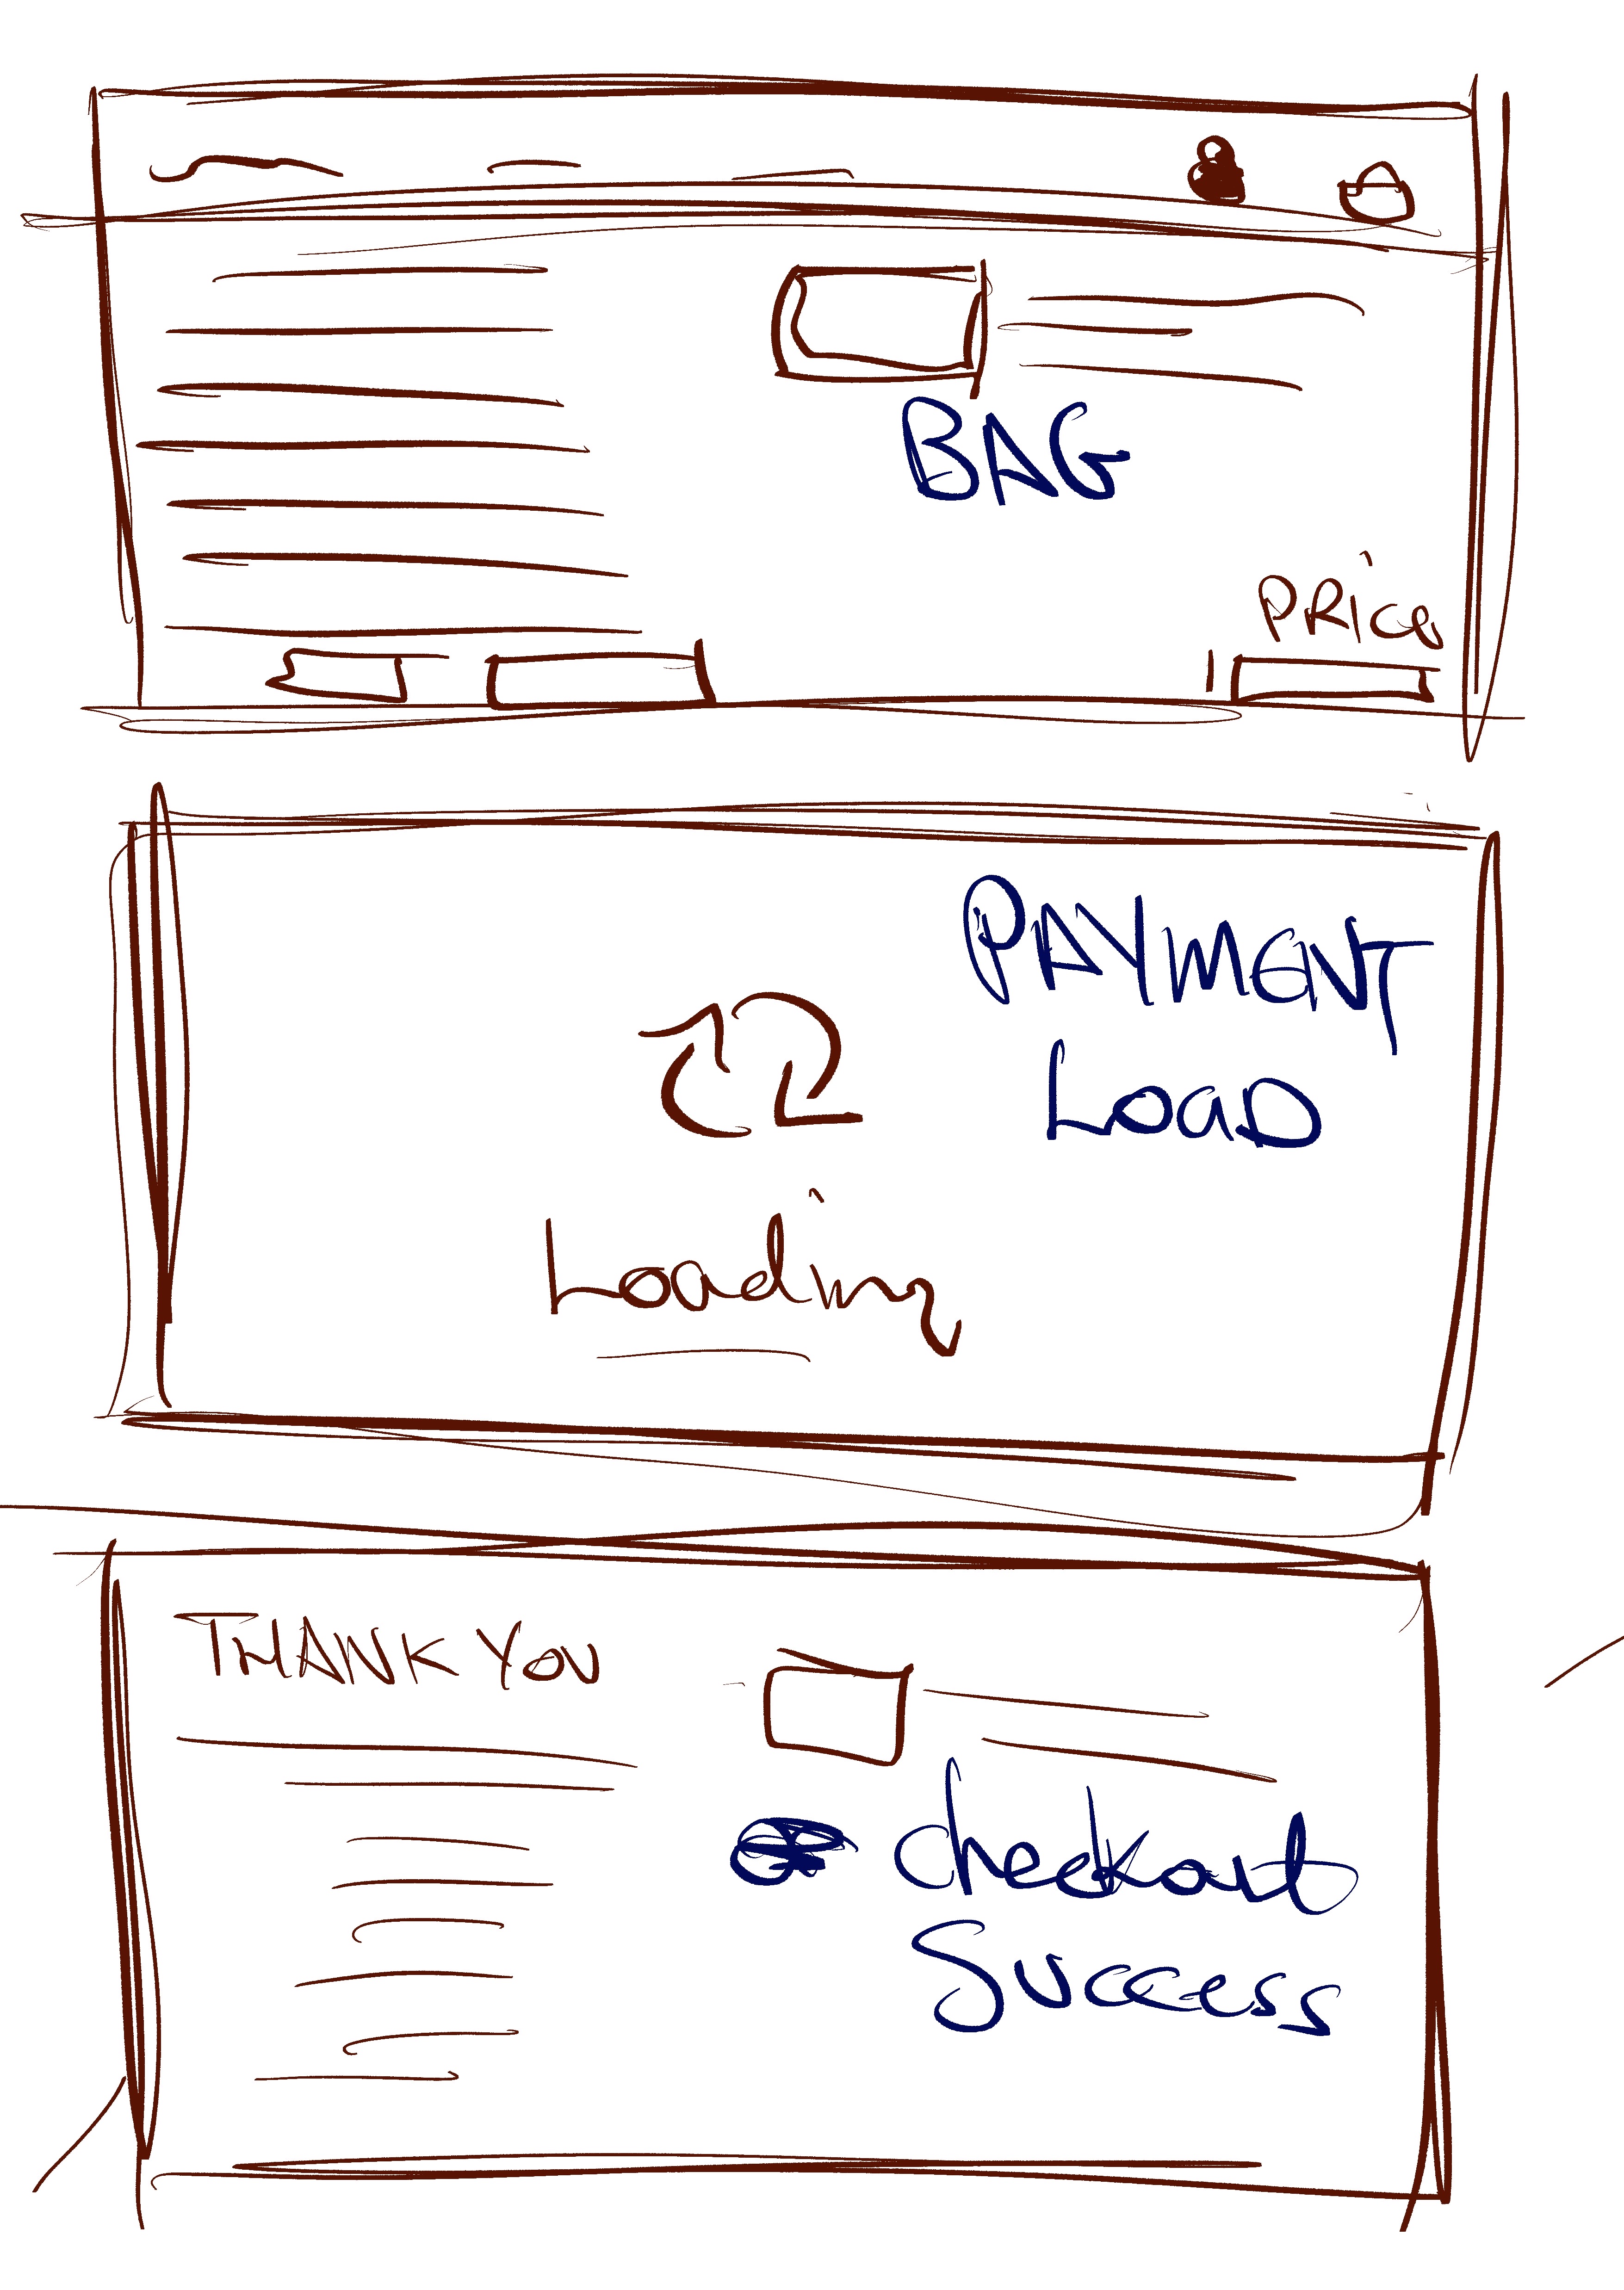 BAG
PRice
PAYMENT
Load
Loading
THANK YOU
checkout
Success